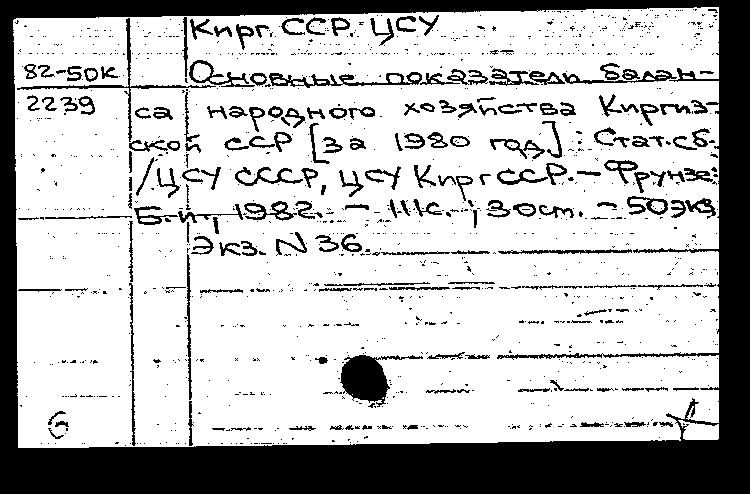 Кирг. ССР. ЦСУ
82-50к Основные показатели балан-
2239 са народного хозяйства Киргиз-
ской ССР [за 1980 год] : Стат.сб.
/ЦСУ СССР, ЦСУ Кирг ССР. – Фрунзе:
Б.и., 1982. – 111с. ; 30см. – 50экз
Экз. N 36.